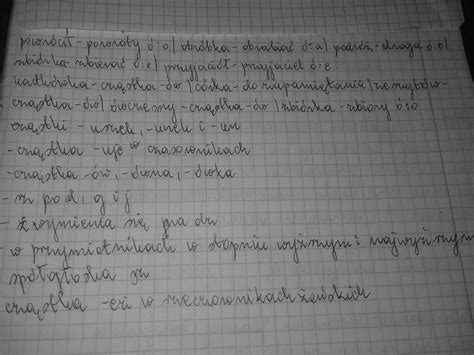 powrócił - powroty ó:o | obróbka - obrabiać ó:a | podróż - droga ó:o |
zbiórka - zbierać ó:e | przyjaciół - przyjaciel ó:e
kartkówka - cząstka - ów | córka - do zapamiętania | zeszytów -
cząstka - ów | ówczesny - cząstka - ów | zbiórka - zbiory ó:o
cząstki - uszek, - unek i - un
- cząstka - uje w czasownikach
- cząstka - ów, - ówna, - ówka
- rz po d, g i j
- ż wymienia się na dz
- w przymiotnikach w stopniu wyższym i najwyższym
spółgłoska sz
cząstka - eż w rzeczownikach żeńskich